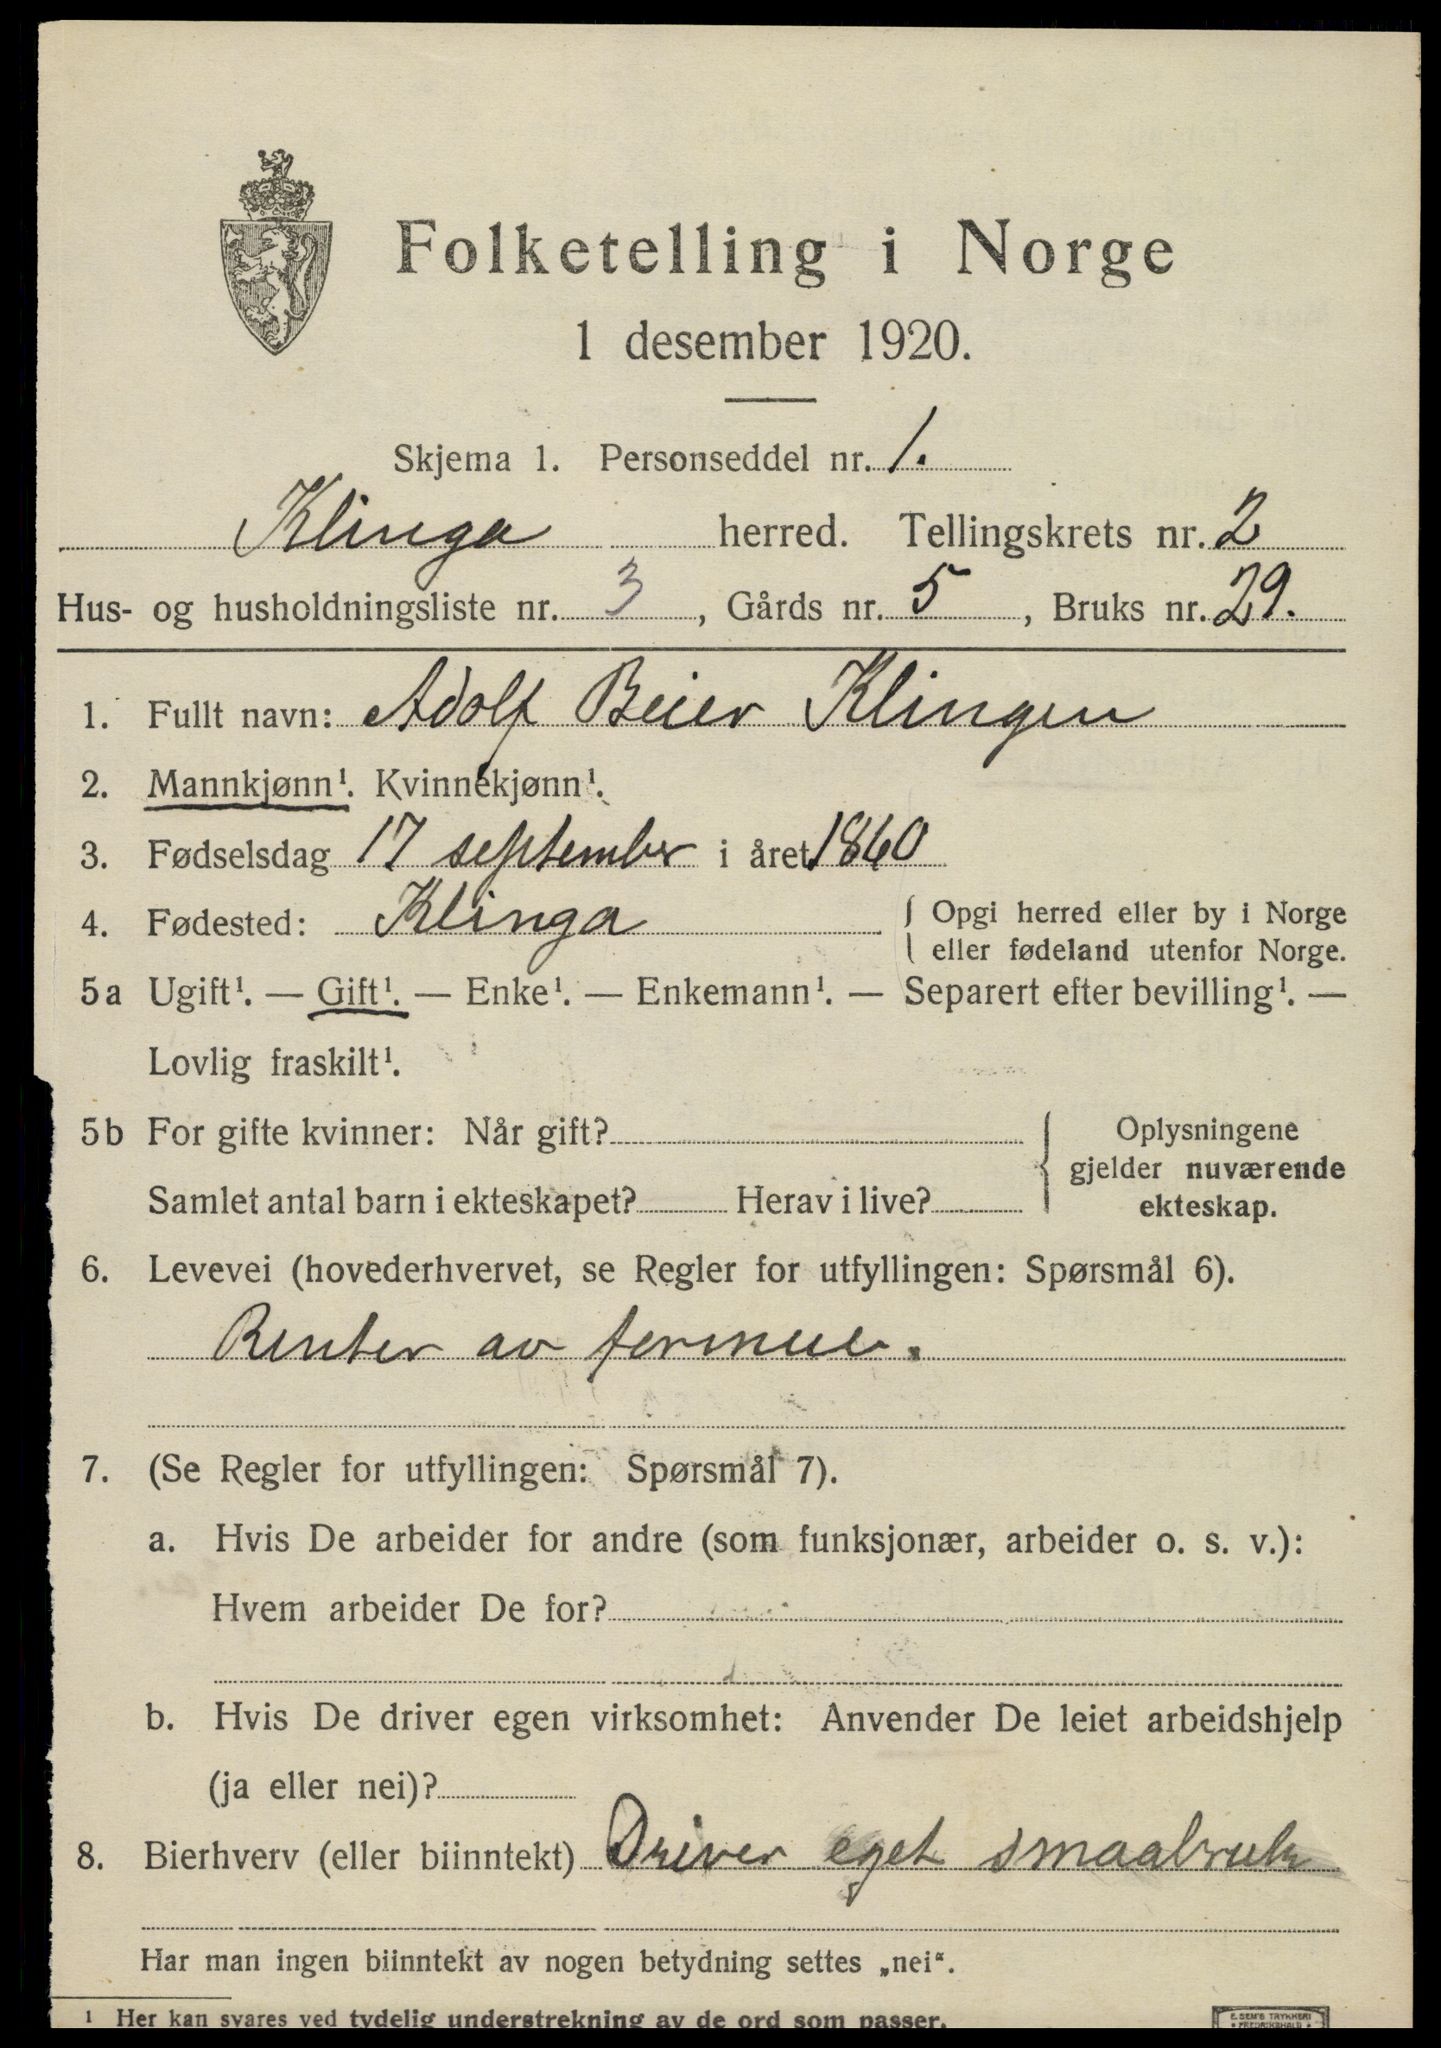 Folketelling i Norge
1 desember 1920.
Skjema 1. Personseddel nr. 1.
Klinga herred. Tellingskrets nr. 2
Hus- og husholdningsliste nr. 3, Gårds nr. 5, Bruks nr. 29.
1. Fullt navn: Adolf Beier Klingen
2. Mannkjønn¹. Kvinnekjønn¹.
3. Fødselsdag 17 september i året 1860
4. Fødested: Klinga { Opgi herred eller by i Norge
eller fødeland utenfor Norge.
5a Ugift¹. — Gift¹. — Enke¹. — Enkemann¹. — Separert efter bevilling¹. —
Lovlig fraskilt¹.
5b For gifte kvinner: Når gift? { Oplysningene
gjelder nuværende
Samlet antal barn i ekteskapet? Herav i live? ekteskap.
6. Levevei (hovederhvervet, se Regler for utfyllingen: Spørsmål 6).
Renter av formue.
7. (Se Regler for utfyllingen: Spørsmål 7).
a. Hvis De arbeider for andre (som funksjonær, arbeider o. s. v.):
Hvem arbeider De for?
b. Hvis De driver egen virksomhet: Anvender De leiet arbeidshjelp
(ja eller nei)?
8. Bierhverv (eller biinntekt) Driver eget smaabruk
Har man ingen biinntekt av nogen betydning settes „nei“.
¹ Her kan svares ved tydelig understrekning av de ord som passer.
E. SEM'S TRYKKERI
FREDRIKSHALD